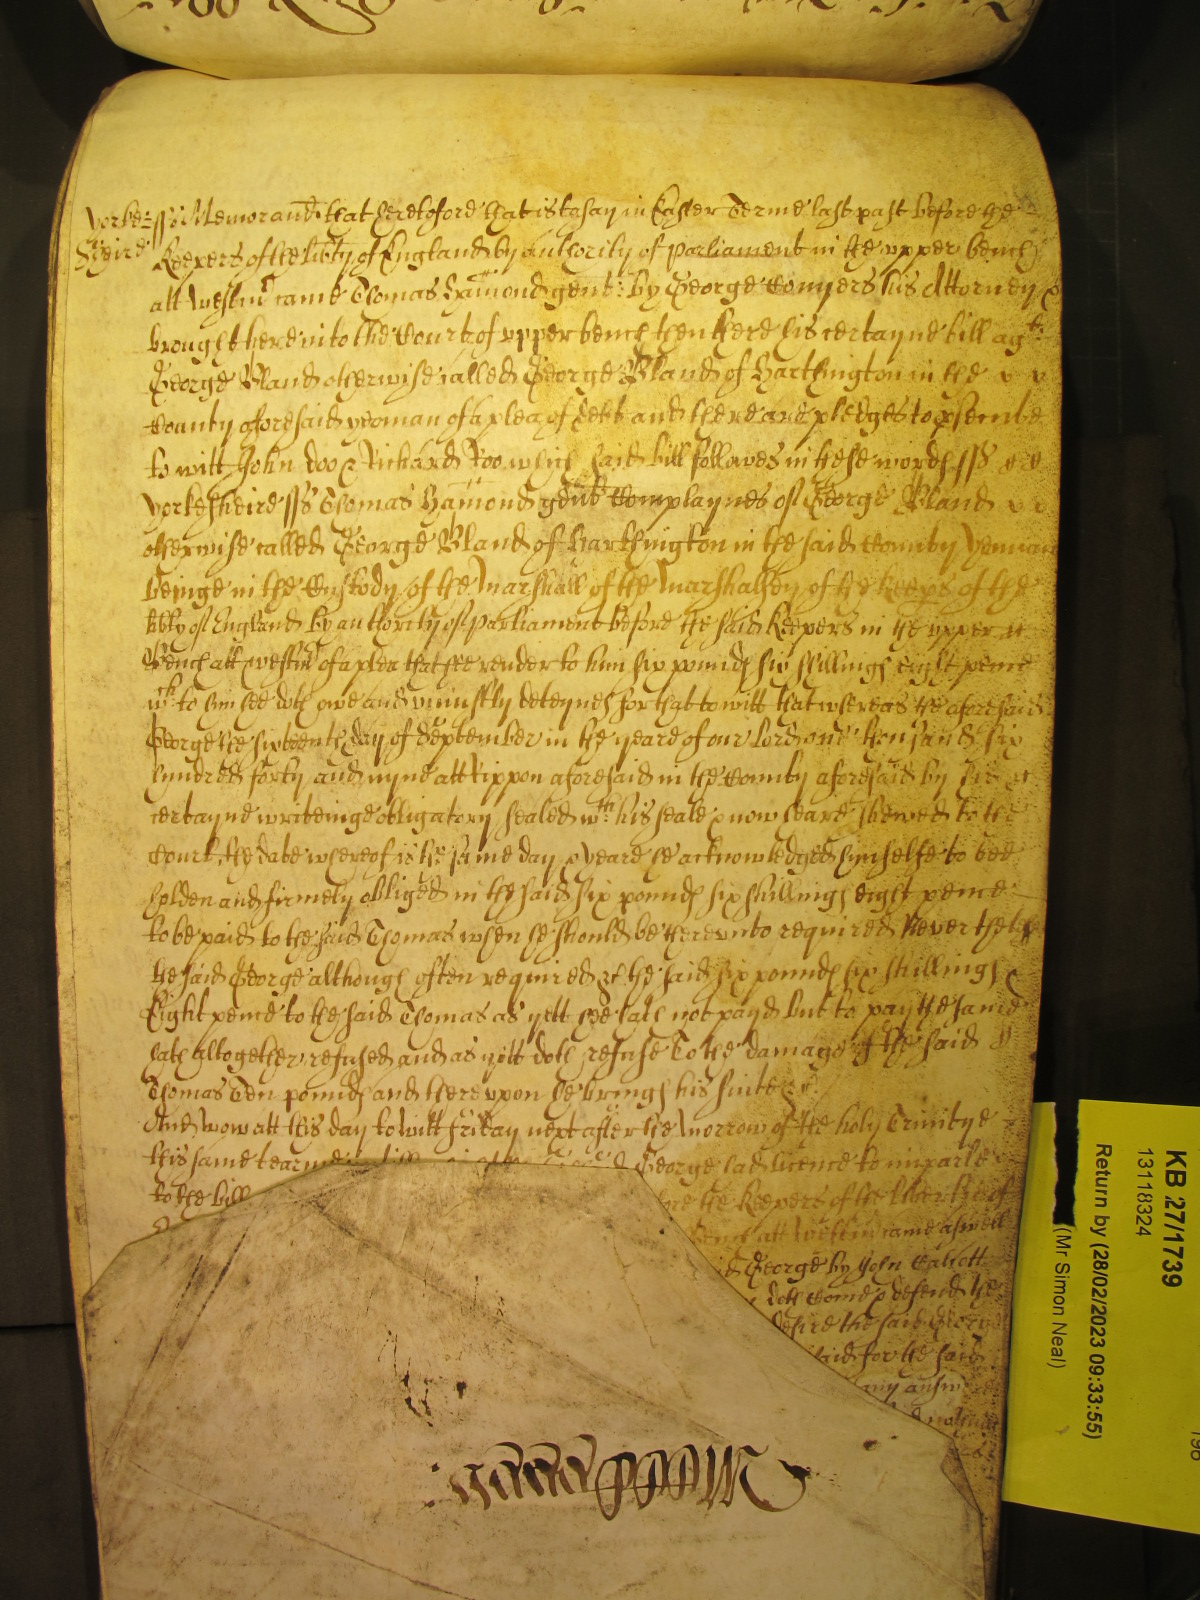 Yorke=
sheire
ss Memorand that heretofore that is to say in Easter Terme last past before the
Keepers of the libty of England by authority of Parliament in the upper bench
att Westmr came Thomas Hamond gent: by George Conyers his Attorney &
brought here into the Court of upper bench then there his certayne bill agt
George Bland otherwise called George Bland of Harthington in the
County aforesaid yeoman of a plea of debt and there are pledges to psecute
to witt John doo & Richard Roo which said bill followes in these words ss
Yorkesheire ss Thomas Hamond gent Complaynes of George Bland
otherwise called George Bland of Harthington in the said County Yeoman
beinge in the Custody of the Marshall of the Marshalsey of the keeps of the
libty of England by authority of Parliament before the said Keepers in the upper
Bench att Westmr of a plea that hee render to him six pounds six shillings eight pence
wch to him hee doth owe and uniustly deteynes for that to witt that whereas the aforesaid
George the sixteenth day of September in the yeare of our Lord one thousand six
hundred forty and nyne att Rippon aforesaid in the County aforesaid by his
certayne writeinge obligatory sealed wth his seale & now heare shewed to the
Court, the date whereof is the same day & yeare he acknowledged himselfe to bee
holden and firmely obliged in the said six pounds six shillings eight pence
to be paid to the said Thomas when he should be thereunto required Neverthelesse
the said George although often required &c the said six pounds six shillings
Eight pence to the said Thomas as yett hee hath not payd but to pay the same
hath altogether refused and as yett doth refuse To the damage of the said
Thomas Ten pounds and thereupon he brings his suite &c
And Now att this day to witt friday next after the Morrow of the holy Trinitye
this same tearme George had licence to imparle
to the bill the Keepers of the libertie of
bench att Westmr came aswell
George by John Calvert
doth come & defend the
desire the said George
said for the said
any answ
KB 27/1739
13118324
Return by (28/02/2023 09:33:55)
(Mr Simon Neal)